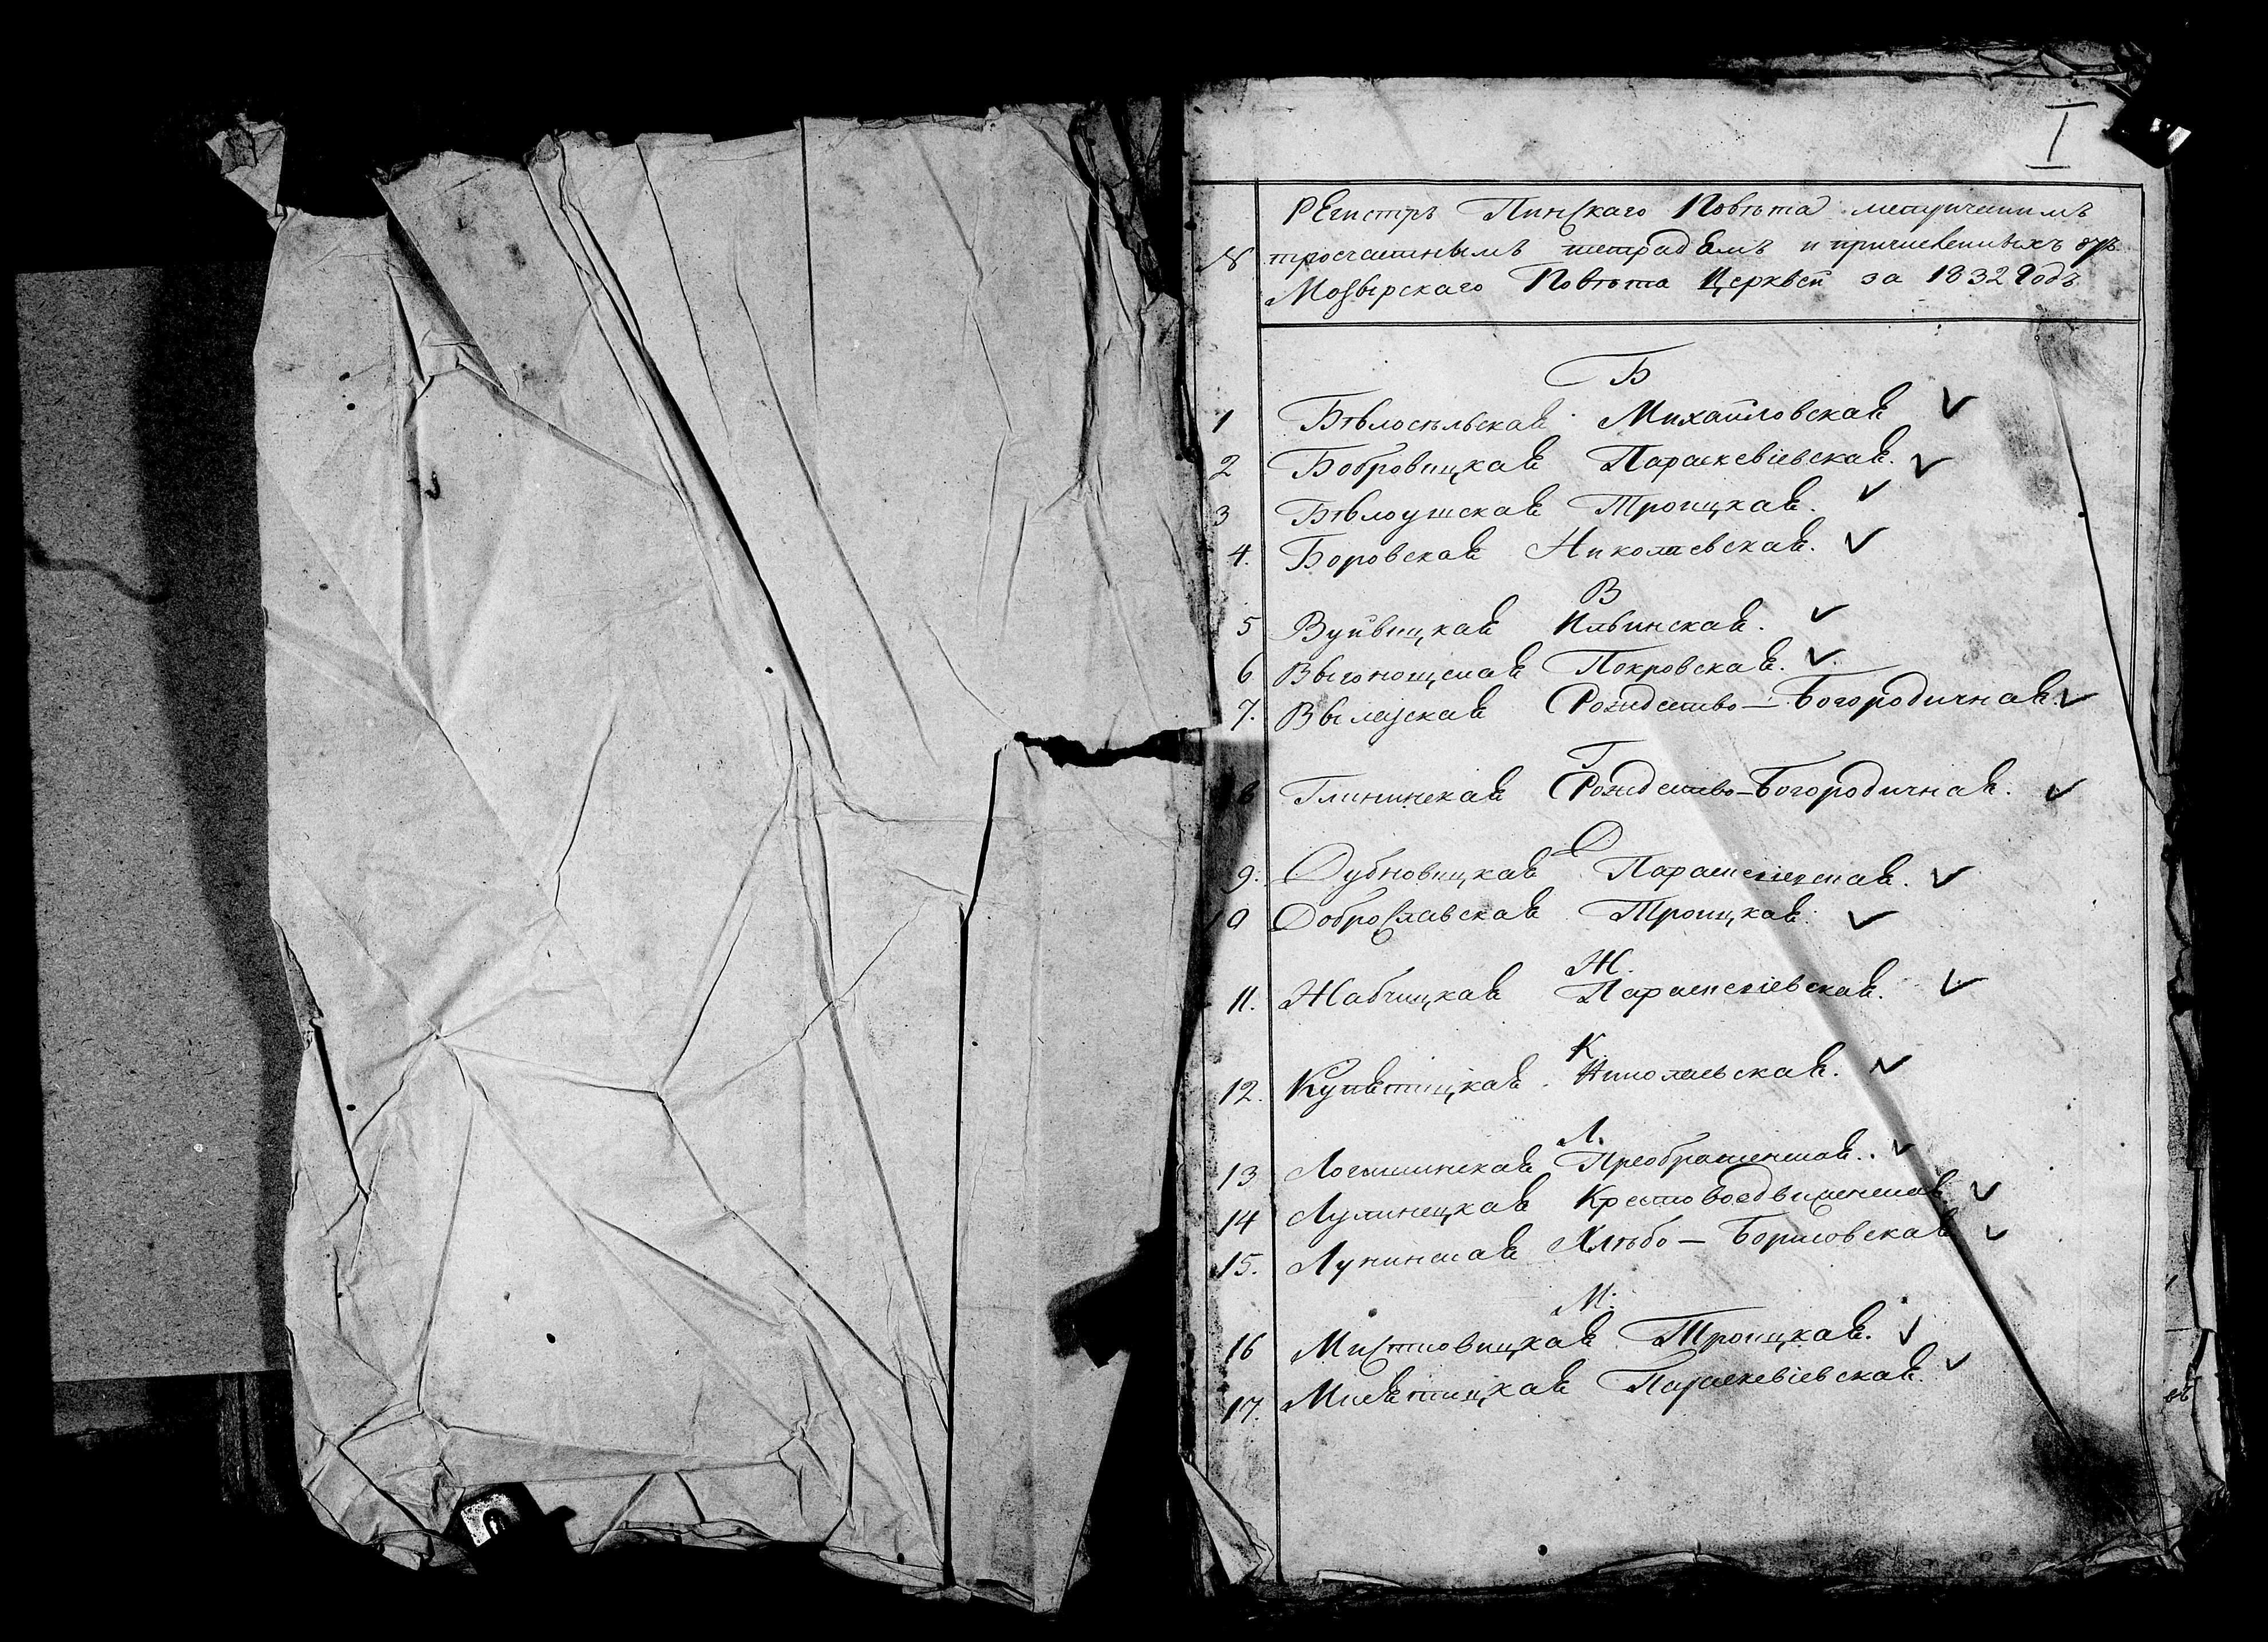 I
РЕгистръ Пинскаго Повѣта метрическимъ
№ тросчатнымъ тетрадямъ и причисленныхъ отъ
Мозырскаго Повѣта Церквей за 1832 Годъ
Б
1 Бѣлосѣльская Михайловская
2 Бобровицкая Параскевіевская.
3 Бѣлоушская Троицкая.
4. Боровская Николаевская.
В
5 Вуйвицкая Ильинская.
6 Выгонощская Покровская.
7. Вылазская Рождество-Богородичная.
Г
8 Глининская Рождество-Богородичная.
Д
9. Дубновицкая Параскевіевская.
10 Доброславская Троицкая.
Ж.
11. Жабчицкая Параскевіевская.
К
12. Купятицкая Николаевская.
Л.
13 Логишинская Преображенская.
14 Лулинецкая Крестовоздвиженская
15. Лунинская Хлѣбо-Борисовская
М.
16 Мистковицкая Троицкая.
17. Милятицкая Параскевіевская.